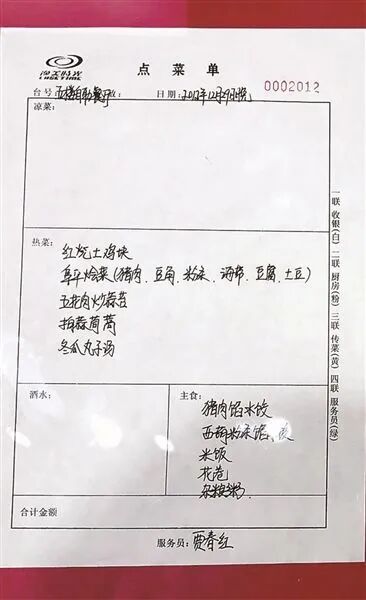 浪美时光
LUSE TIME
点菜单
0002012
台号: 五楼自助餐厅 数: 日期: 2012年12月29日晚
凉菜:
热菜:
红烧土鸡块
阜平烩菜(猪肉、豆角、粉条、海带、豆腐、土豆)
五花肉炒蒜苔
拍蒜茼蒿
冬瓜丸子汤
酒水:
主食:
猪肉馅水饺
西葫粉条馅
米饭
花卷
杂粮粥
合计金额
服务员: 贾春红
一联 收银(白) 二联 厨房(粉) 三联 传菜(黄) 四联 服务员(绿)